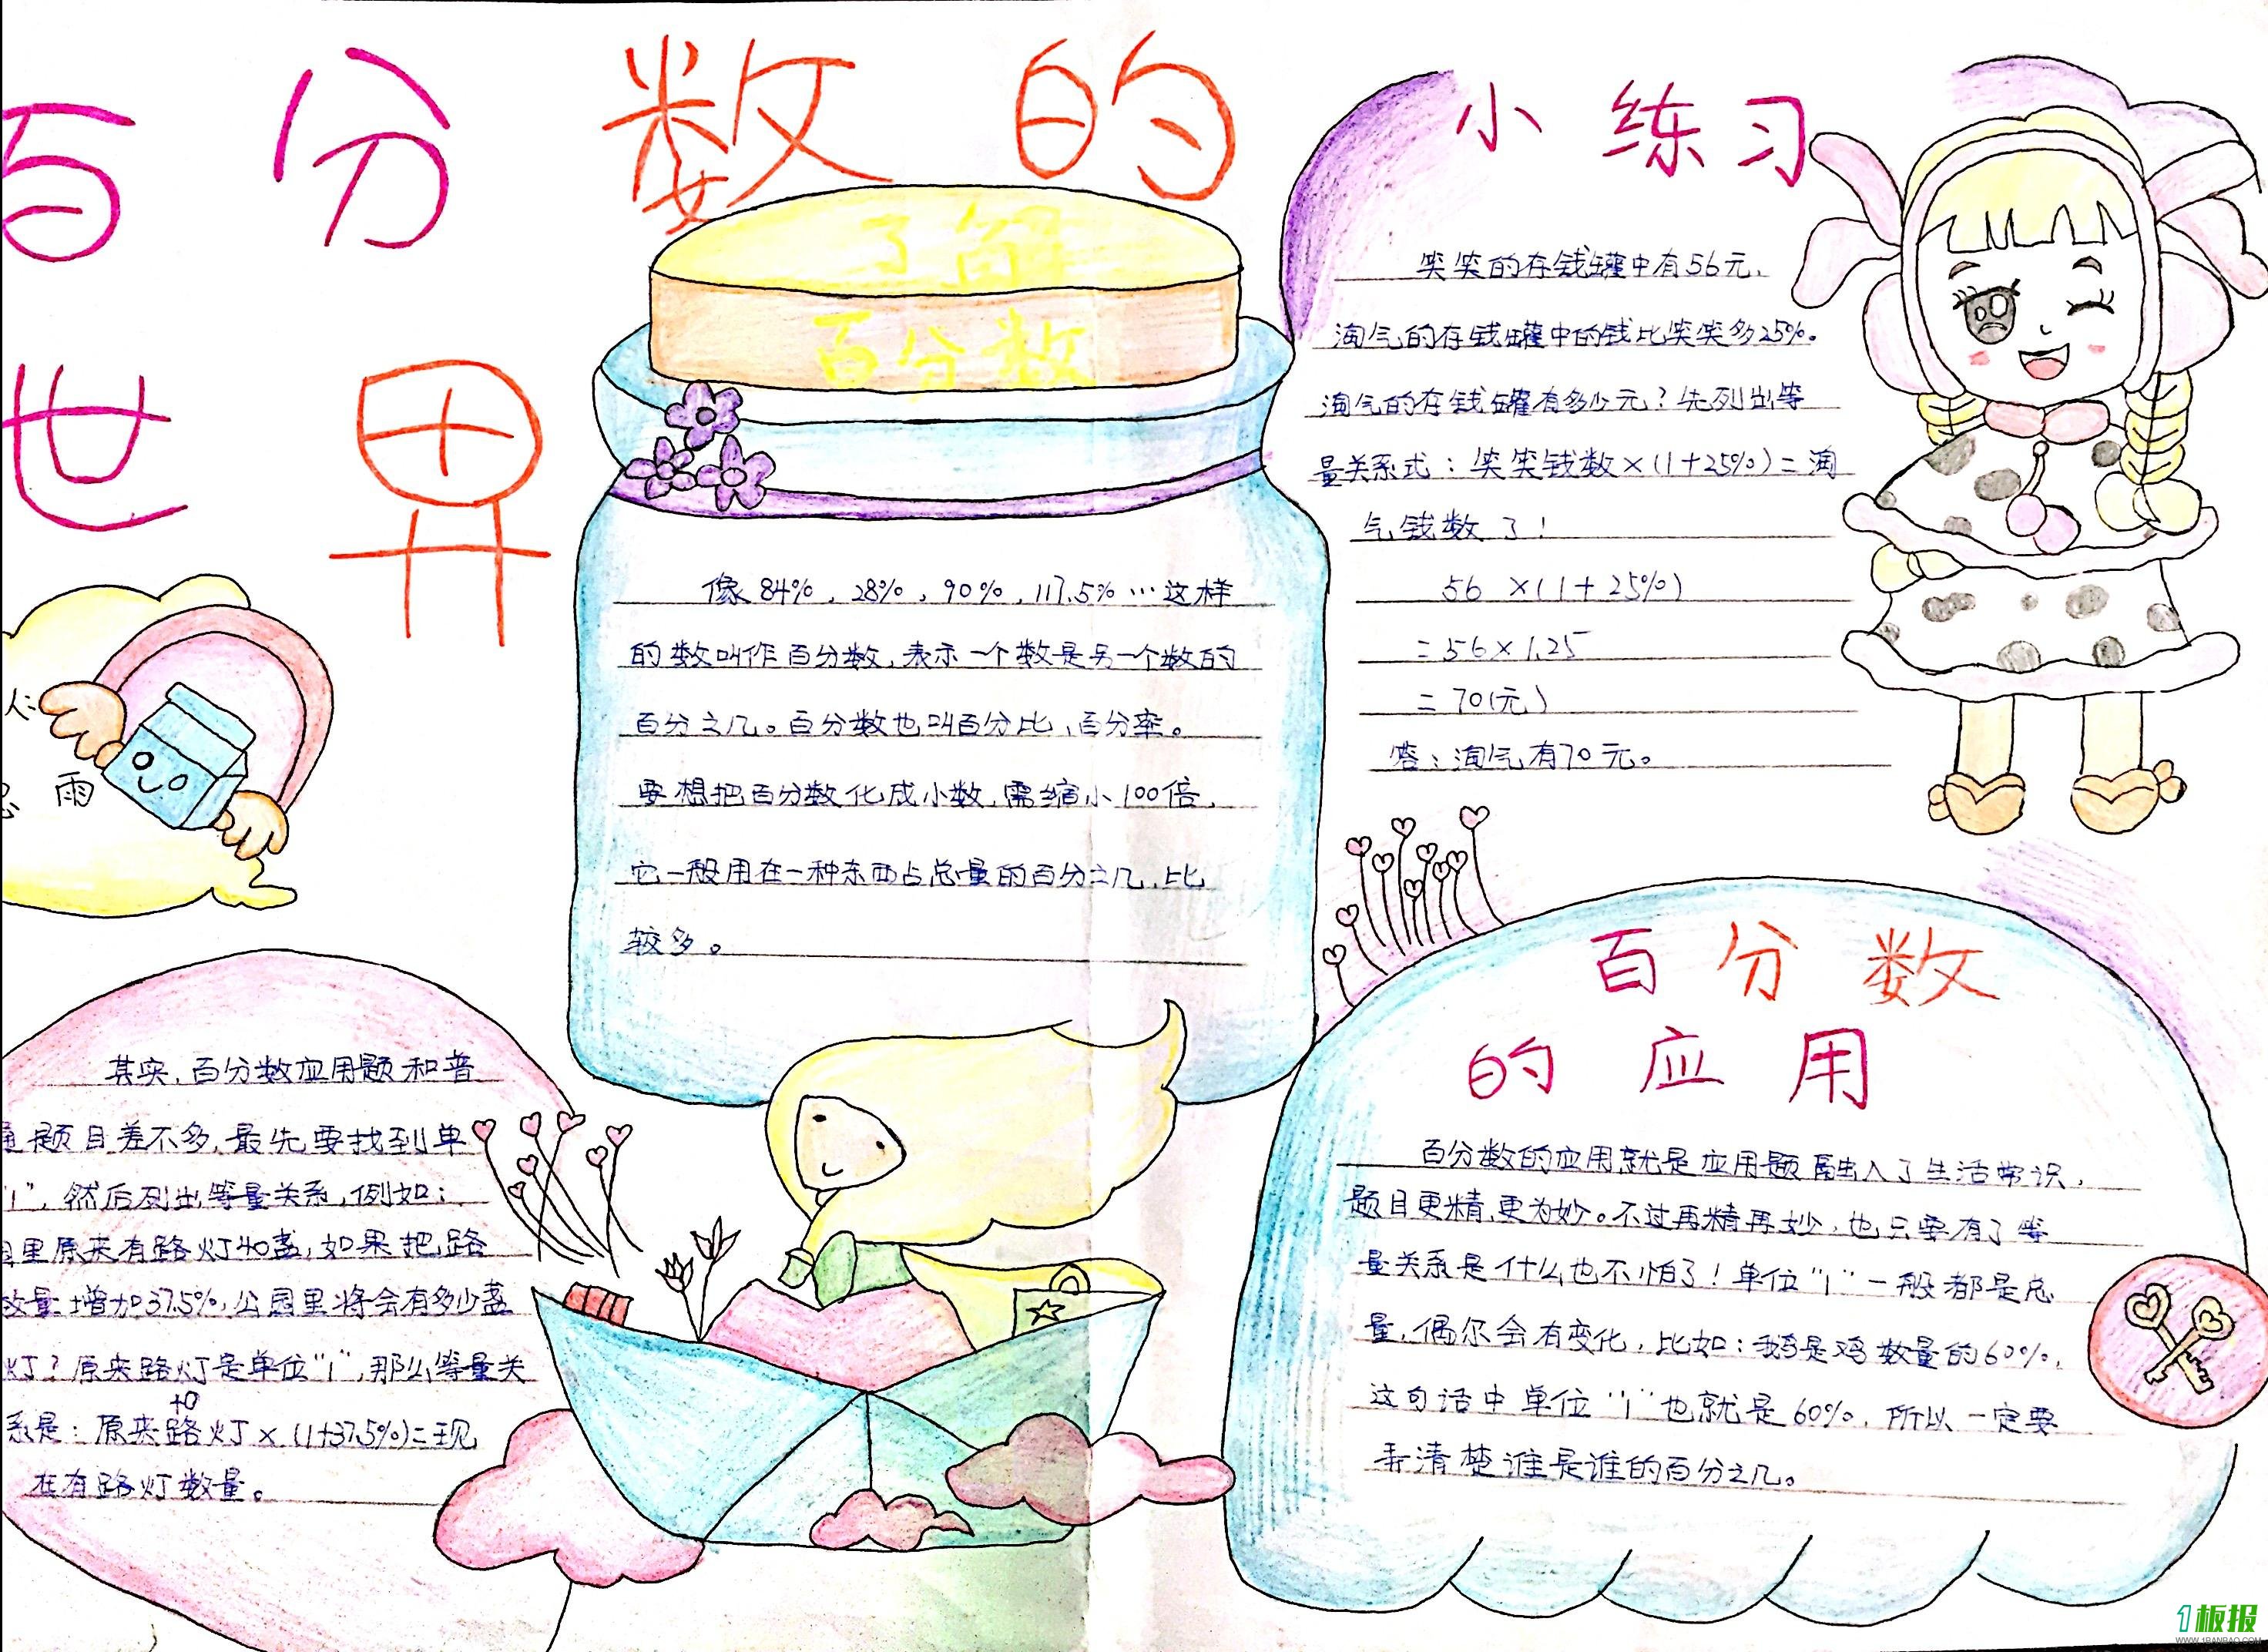 百分数的
世界
了解
百分数
像84%，28%，90%，117.5%…这样
的数叫作百分数，表示一个数是另一个数的
百分之几。百分数也叫百分比、百分率。
要想把百分数化成小数，需缩小100倍，
它一般用在一种东西占总量的百分之几，比
较多。
小练习
笑笑的存钱罐中有56元，
淘气的存钱罐中的钱比笑笑多25%。
淘气的存钱罐有多少元？先列出等
量关系式：笑笑钱数×(1+25%)=淘
气钱数了！
56×(1+25%)
=56×1.25
=70(元)
答：淘气有70元。
人：
雨
其实，百分数应用题和普
通题目差不多，最先要找到单
"1"，然后列出等量关系，例如：
里原来有路灯40盏，如果把路
数量增加37.5%，公园里将会有多少盏
灯？原来路灯是单位"1"，那么等量关
系是：原来路灯×(1+37.5%)=现
在有路灯数量。
百分数
的应用
百分数的应用就是应用题融入了生活常识，
题目更精，更为妙。不过再精再妙，也只要有了等
量关系是什么也不怕了！单位"1"一般都是总
量，偶尔会有变化，比如：鹅是鸡数量的60%，
这句话中单位"1"也就是60%，所以一定要
弄清楚谁是谁的百分之几。
1板报
WWW.1BANBAO.COM